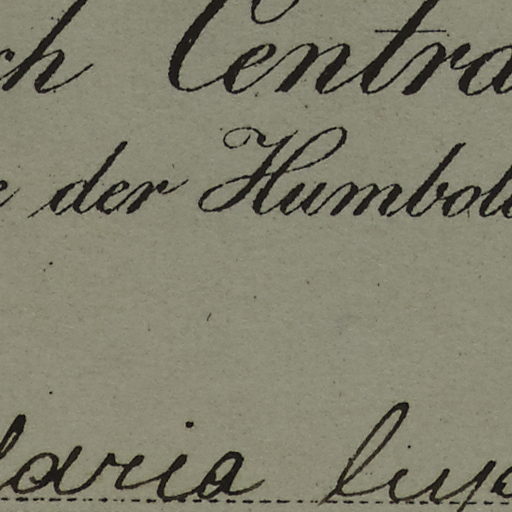 ch Centra
e der Humbol
aria